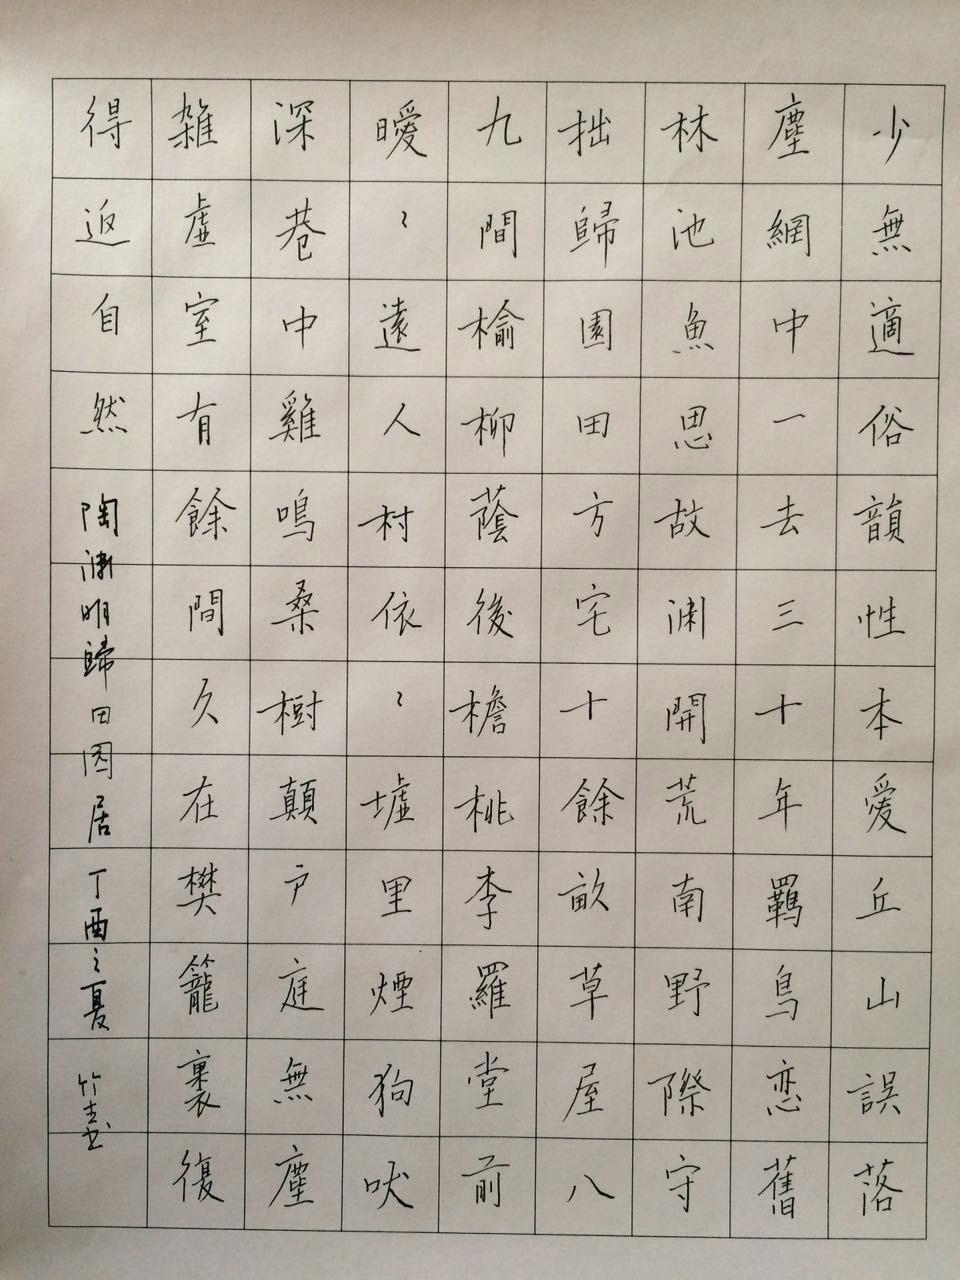 少無適俗韻性本愛丘山誤落
塵網中一去三十年羈鳥恋舊
林池魚思故渊開荒南野際守
拙歸園田方宅十餘畝草屋八
九間榆柳蔭後檐桃李羅堂前
曖〻遠人村依〻墟里煙狗吠
深巷中雞鳴桑樹顛戶庭無塵
雑虛室有餘間久在樊籠裏復
得返自然 陶渊明歸田园居 丁酉之夏